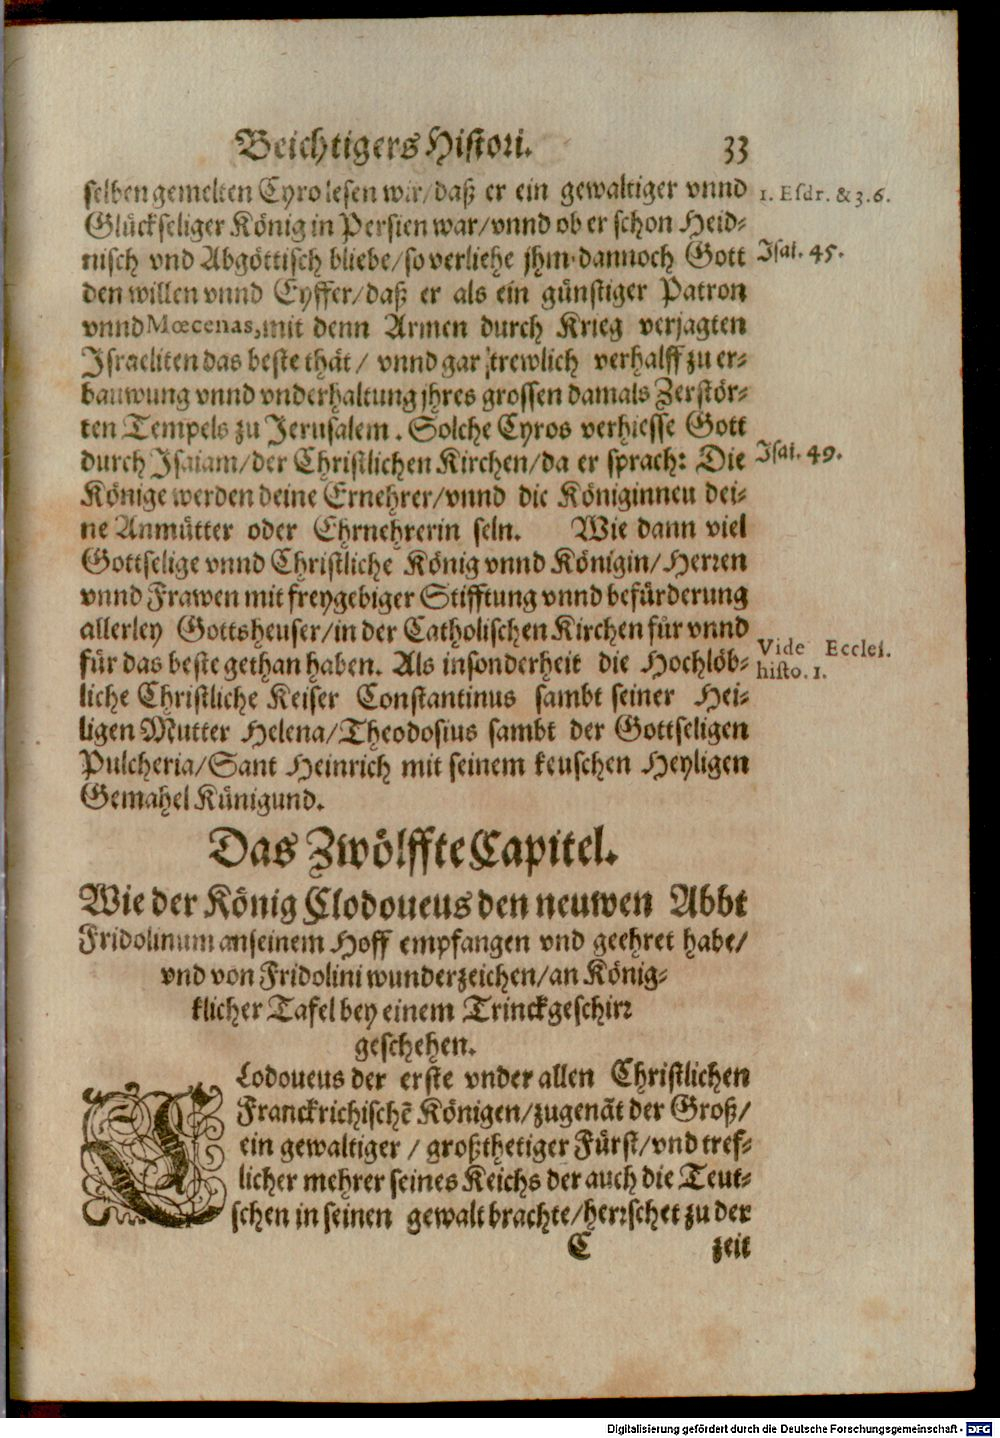 Beichtigers Histori. 33
selben gemelten Cyro lesen wir/ daß er ein gewaltiger vnnd 1. Esdr. & 3. 6.
Glückseliger König in Persien war/ vnnd ob er schon Heid-
nisch vnd Abgöttisch bliebe/ so verliehe jhm dannoch Gott Jsai. 45.
den willen vnnd Eyffer/ daß er als ein günstiger Patron
vnnd Mœcenas, mit denn Armen durch Krieg verjagten
Jsraeliten das beste thät/ vnnd gar trewlich verhalff zu er-
bauwung vnnd vnderhaltung jhres grossen damals Zerstör-
ten Tempels zu Jerusalem. Solche Cyros verhiesse Gott
durch Jsaiam/ der Christlichen Kirchen/ da er sprach: Die Jsai. 49.
Könige werden deine Ernehrer/ vnnd die Königinneu dei-
ne Anmütter oder Ehrnehrerin seln. Wie dann viel
Gottselige vnnd Christliche König vnnd Königin/ Herren
vnnd Frawen mit freygebiger Stifftung vnnd befürderung
allerley Gottsheuser/ in der Catholischen Kirchen für vnnd
für das beste gethan haben. Als insonderheit die Hochlöb- Vide Ecclei. histo. 1.
liche Christliche Keiser Constantinus sambt seiner Hei-
ligen Mutter Helena/ Theodosius sambt der Gottseligen
Pulcheria/ Sant Heinrich mit seinem keuschen Heyligen
Gemahel Künigund.
Das Zwölffte Capitel.
Wie der König Clodoueus den neuwen Abbt
Fridolinum an seinem Hoff empfangen vnd geehret habe/
vnd von Fridolini wunderzeichen/ an König-
klicher Tafel bey einem Trinckgeschirr
geschehen.
CLodoueus der erste vnder allen Christlichen
Franckrichischē Königen/ zugenāt der Groß/
ein gewaltiger / großthetiger Fürst/ vnd tref-
licher mehrer seines Reichs der auch die Teut-
schen in seinen gewalt brachte/ herrschet zu der
C zeit
Digitalisierung gefördert durch die Deutsche Forschungsgemeinschaft - DFG